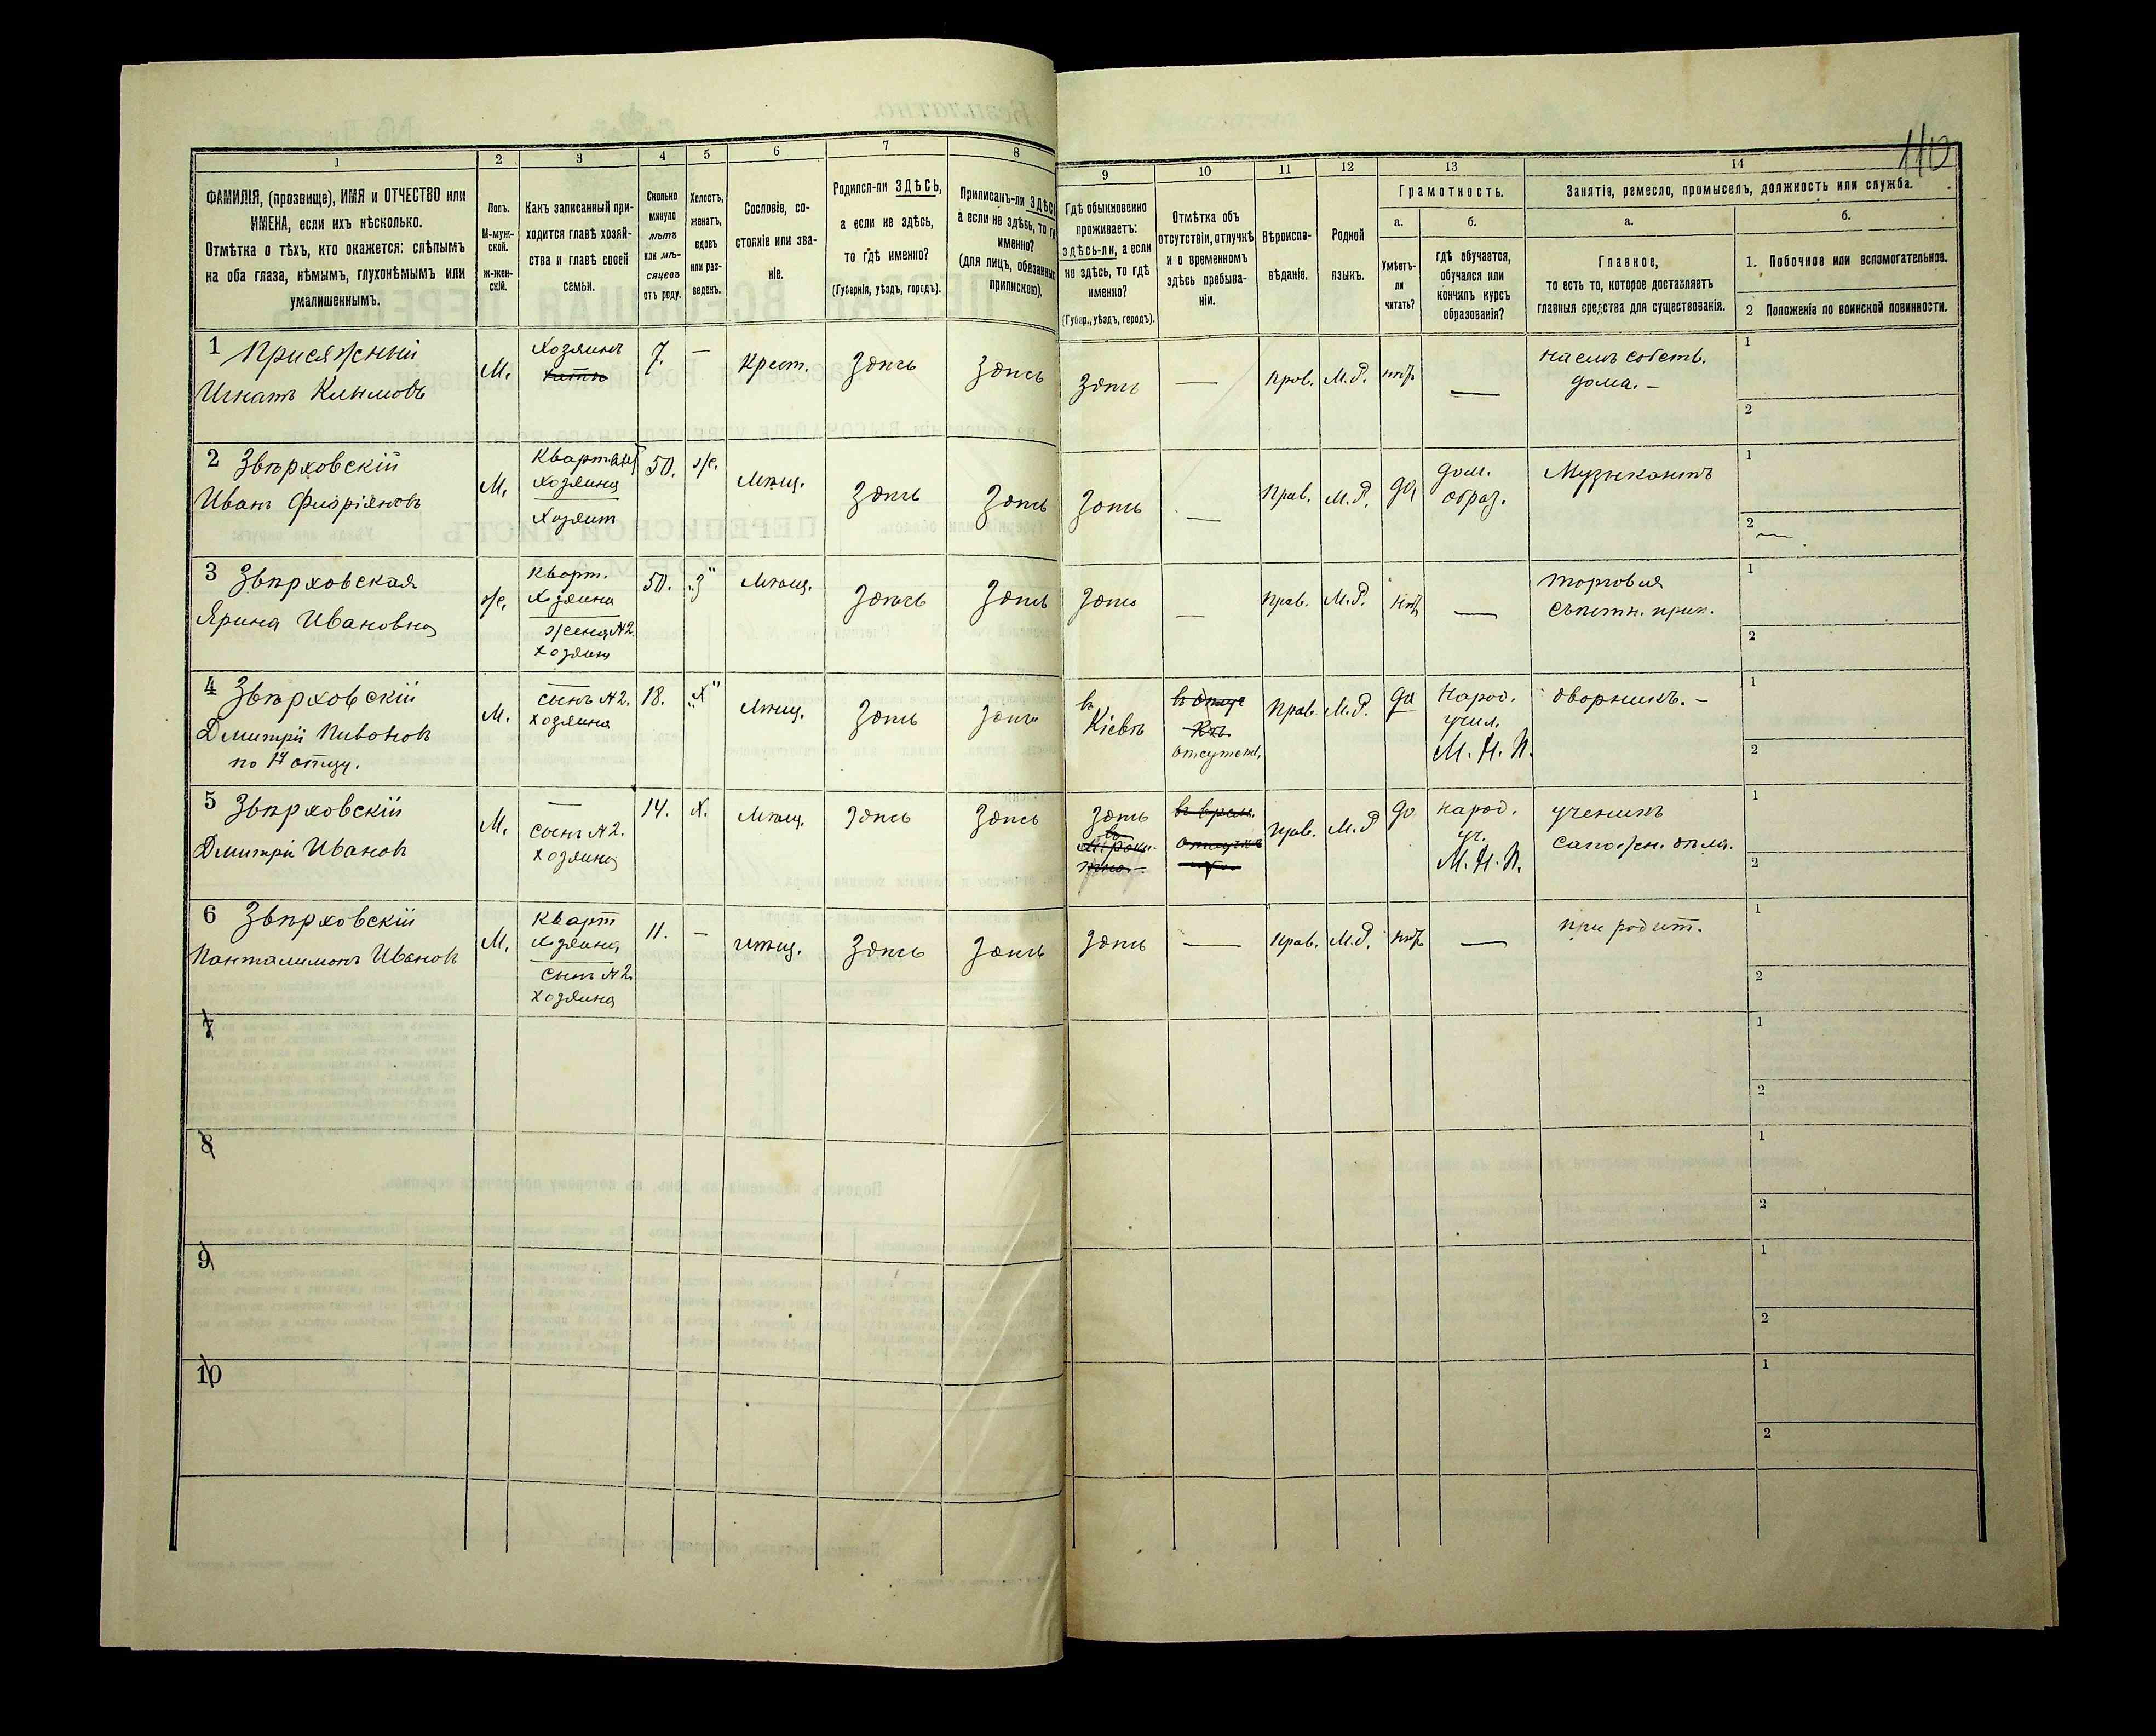 110
1
2
3
4
5
6
7
8
9
10
11
12
13
14
ФАМИЛІЯ, (прозвище), ИМЯ и ОТЧЕСТВО или
ИМЕНА, если ихъ нѣсколько.
Отмѣтка о тѣхъ, кто окажется: слѣпымъ
на оба глаза, нѣмымъ, глухонѣмымъ или
умалишеннымъ.
Полъ.
М-муж-
ской.
ж-жен-
скій.
Какъ записанный при-
ходится главѣ хозяй-
ства и главѣ своей
семьи.
Сколько
минуло
лѣтъ
или мѣ-
сяцевъ
отъ роду.
Холостъ,
женатъ,
вдовъ
или раз-
веденъ.
Сословіе, со-
стояніе или зва-
ніе.
Родился-ли ЗДѢСЬ,
а если не здѣсь,
то гдѣ именно?
(Губернія, уѣздъ, городъ).
Приписанъ-ли ЗДѢСЬ
а если не здѣсь, то гд
именно?
(для лицъ, обязанныхъ
припискою).
Гдѣ обыкновенно
проживаетъ:
здѣсь-ли, а если
не здѣсь, то гдѣ
именно?
(Губер., уѣздъ, городъ).
Отмѣтка объ
отсутствіи, отлучкѣ
и о временномъ
здѣсь пребыва-
ніи.
Вѣроиспо-
вѣданіе.
Родной
языкъ.
Грамотность.
а.
Умѣетъ-
ли
читать?
б.
гдѣ обучается,
обучался или
кончилъ курсъ
образованія?
Занятіе, ремесло, промыселъ, должность или служба.
а.
Главное,
то есть то, которое доставляетъ
главныя средства для существованія.
б.
1. Побочное или вспомогательное.
2 Положеніе по воинской повинности.
1 Присяжный
Игнатъ Климовъ
М.
Хозяинъ
7.
—
Крест.
Здѣсь
Здѣсь
Здѣсь
—
прав.
М.Р.
нѣтъ
—
наемъ собств.
дома. –
1
2
2 Звѣрховскій
Иванъ
М.
Квартант
хозяина
Хозяин
50.
ж.
Мѣщ.
Здѣсь
Здѣсь
Здѣсь
—
Прав.
М.Р.
да
дом.
образ.
Музыкантъ
1
2
3 Звѣрховская
Ярина Ивановна
ж.
Кварт.
хозяина
жена N2
хозяина
50.
„З"
Мѣщ.
Здѣсь
Здѣсь
Здѣсь
—
Прав.
М.Р.
нѣтъ
—
торговля
съѣстн. прип.
1
2
4 Звѣрховскій
Дмитрій
по отцу.
М.
—
сынъ N2.
хозяина
18.
„Х"
Мѣщ.
Здѣсь
Здѣсь
въ
Кіевѣ
отсутств.
Прав.
М.Р.
да
Народ.
учил.
М. Н. П.
дворникъ. –
1
2
5 Звѣрховскій
Дмитрій Ивановъ
М.
—
сынъ N2.
хозяина
14.
Х.
Мѣщ.
Здѣсь
Здѣсь
Здѣсь
прав.
М.Р
да
народ.
уч.
М. Н. П.
ученикъ
сапожн. дѣла.
1
2
6 Звѣрховскій
Панталимонъ Ивановъ
М.
Кварт
хозяина
сынъ N2
хозяина
11.
–
мѣщ.
Здѣсь
Здѣсь
Здѣсь
—
Прав.
М.Р.
нѣтъ
—
при родит.
1
2
7
1
2
8
1
2
9
1
2
10
1
2